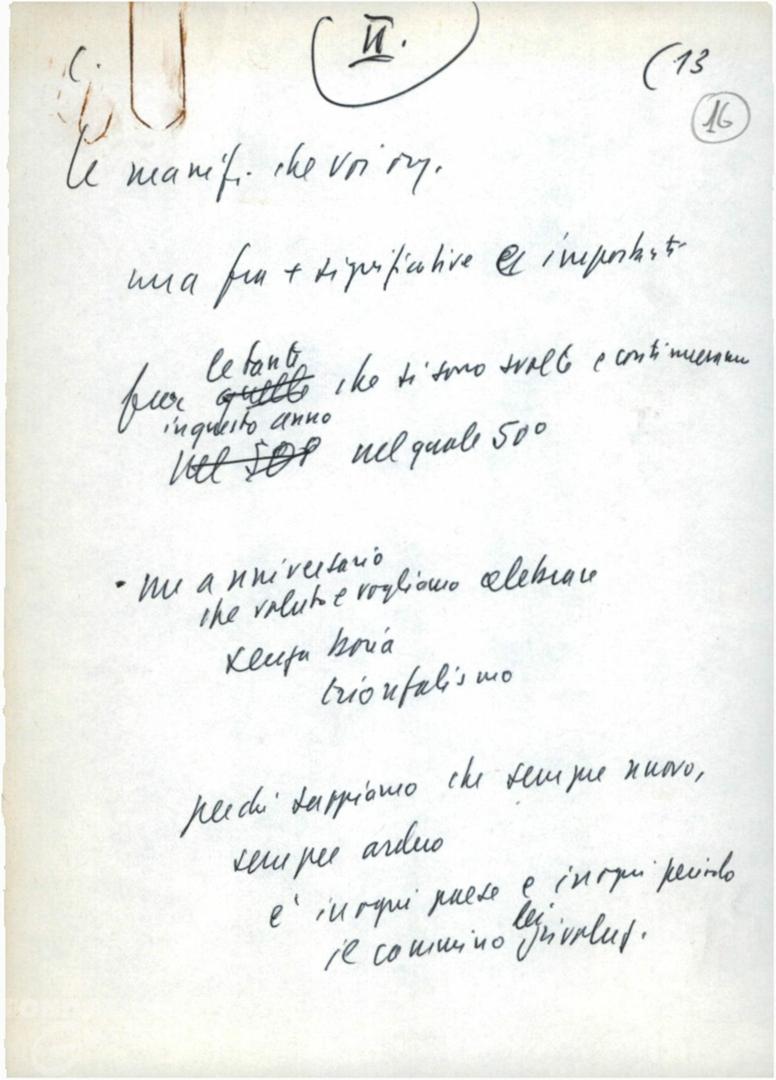 C.
II.
(13
16
le manif. che voi org.
una fra + significative e importanti
fra quelle le tante che si sono svolte e continueranno
in questo anno
nel 50º nel quale 50º
• un anniversario
che voluto e vogliamo celebrare
senza boria
trionfalismo
perché sappiamo che sempre nuovo,
sempre arduo
è in ogni paese e in ogni periodo
il cammino rivoluz.